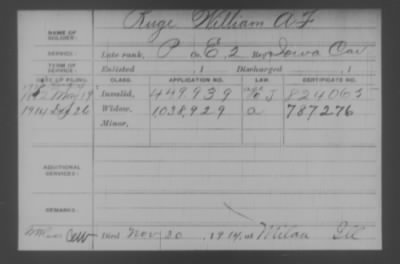 NAME OF SOLDIER: Ruge William A F
SERVICE: Late rank, P Co. E, 2 Reg Iowa Cav
TERM OF SERVICE: Enlisted , 1 Discharged , 1
DATE OF FILING. CLASS. APPLICATION NO. LAW. CERTIFICATE NO.
May Invalid, 449,939 J 824065
1914 26 Widow, 1038,929 a 787276
Minor,
ADDITIONAL SERVICES:
REMARKS:
Died Nov 30 , 1914, at Milan Ill